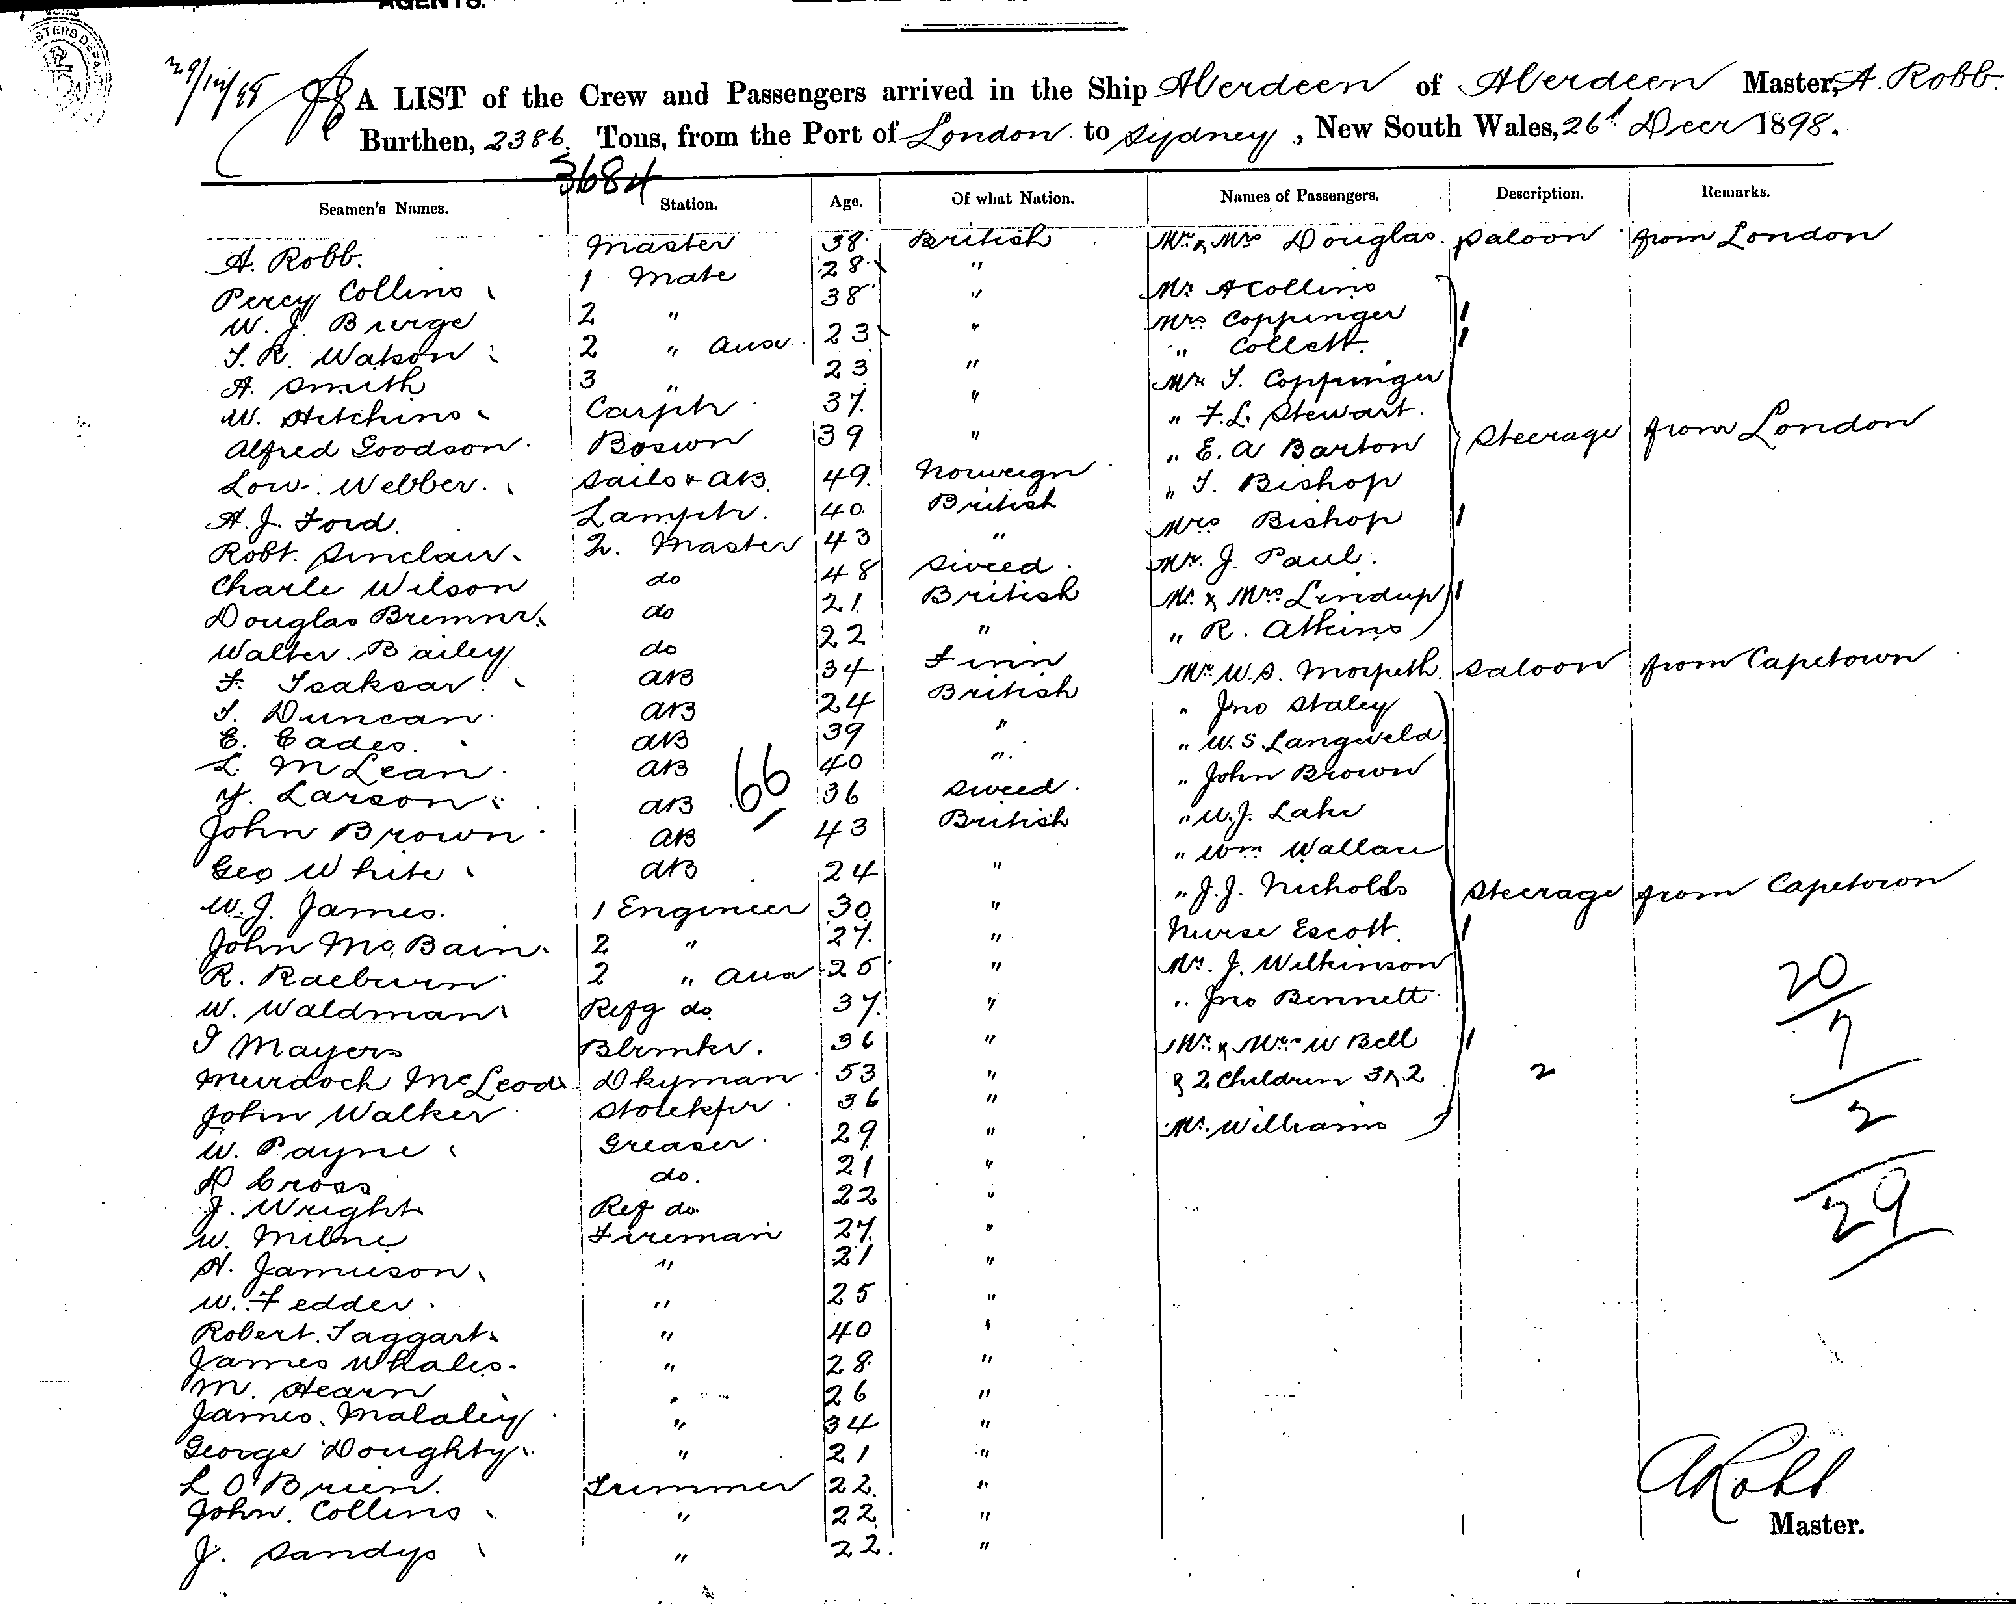 AGENTS.
29/12/98 A LIST of the Crew and Passengers arrived in the Ship Aberdeen of Aberdeen Master, A. Robb.
Burthen, 2386 Tons, from the Port of London to Sydney, New South Wales, 26t Decr 1898.
3684
Seamen's Names. Station. Age. Of what Nation. Names of Passengers. Description. Remarks.
A. Robb. Master 38 British Mr & Mrs Douglas. saloon from London
Percy Collins 1 Mate 28 " Mr A Collins
W. J. Burge 2 " 38 " Mrs Coppinger
T. R. Watson 2 " Aux 23 " " Collett.
A. Smith 3 " 23 " Mr T. Coppinger
W. Hitchins Carptr 37 " " F. L. Stewart.
Alfred Goodson Boswn 39 " " E. A Barton steerage from London
Low. Webber. Sails & AB. 49 Norweign " T. Bishop
A. J. Ford. Lamptr. 40 British Mrs Bishop
Robt. Sinclair 2. Master 43 " Mr. J. Paul.
Charle Wilson do 48 Sweed. Mr & Mrs Lindup
Douglas Bremnr. do 21 British " R. Atkins
Walter. Bailey do 22 " Mr W. S. Morpeth saloon from Capetown
F. Isaksar. AB 34 Finn " Jno Staley
T. Duncan. AB 24 British " W. S. Langweld
E. Eades. AB 39 " " John Brown
L. McLean. AB 40 " " W. J. Lake
Y. Larson AB 36 Sweed. " Wm Wallace
66
John Brown AB 43 British " J. J. Nicholds steerage from Capetown
Geo White AB 24 " Nurse Escott.
W. J. James. 1 Engineer 30 " Mr. J. Wilkinson
John McBain. 2 " 27 " " Jno Bennett
R. Raeburn 2 " Aux 25 " Mr. & Mrs W Bell
W. Waldman Refg do 37 " & 2 Children 3 & 2 2
T Mayers Blrmkr. 36 " Mr. Williams
Murdoch McLeod Dkyman 53 "
John Walker Storekpr 36 "
W. Payne Greaser. 29 "
A Cross do. 21 "
J. Wright Ref do 22 "
W. Milne Fireman 27 "
A. Jamieson " 21 "
W. Fedder. " 25 "
Robert. Taggart " 40 "
James Whales. " 28 "
M. Hearn " 26 "
James. Malaley " 34 "
George Doughty " 21 "
L O'Brien. Trimmer 22 "
John. Collins " 22 "
J. Sandys " 22. "
20
7
2
29
A Robb
Master.